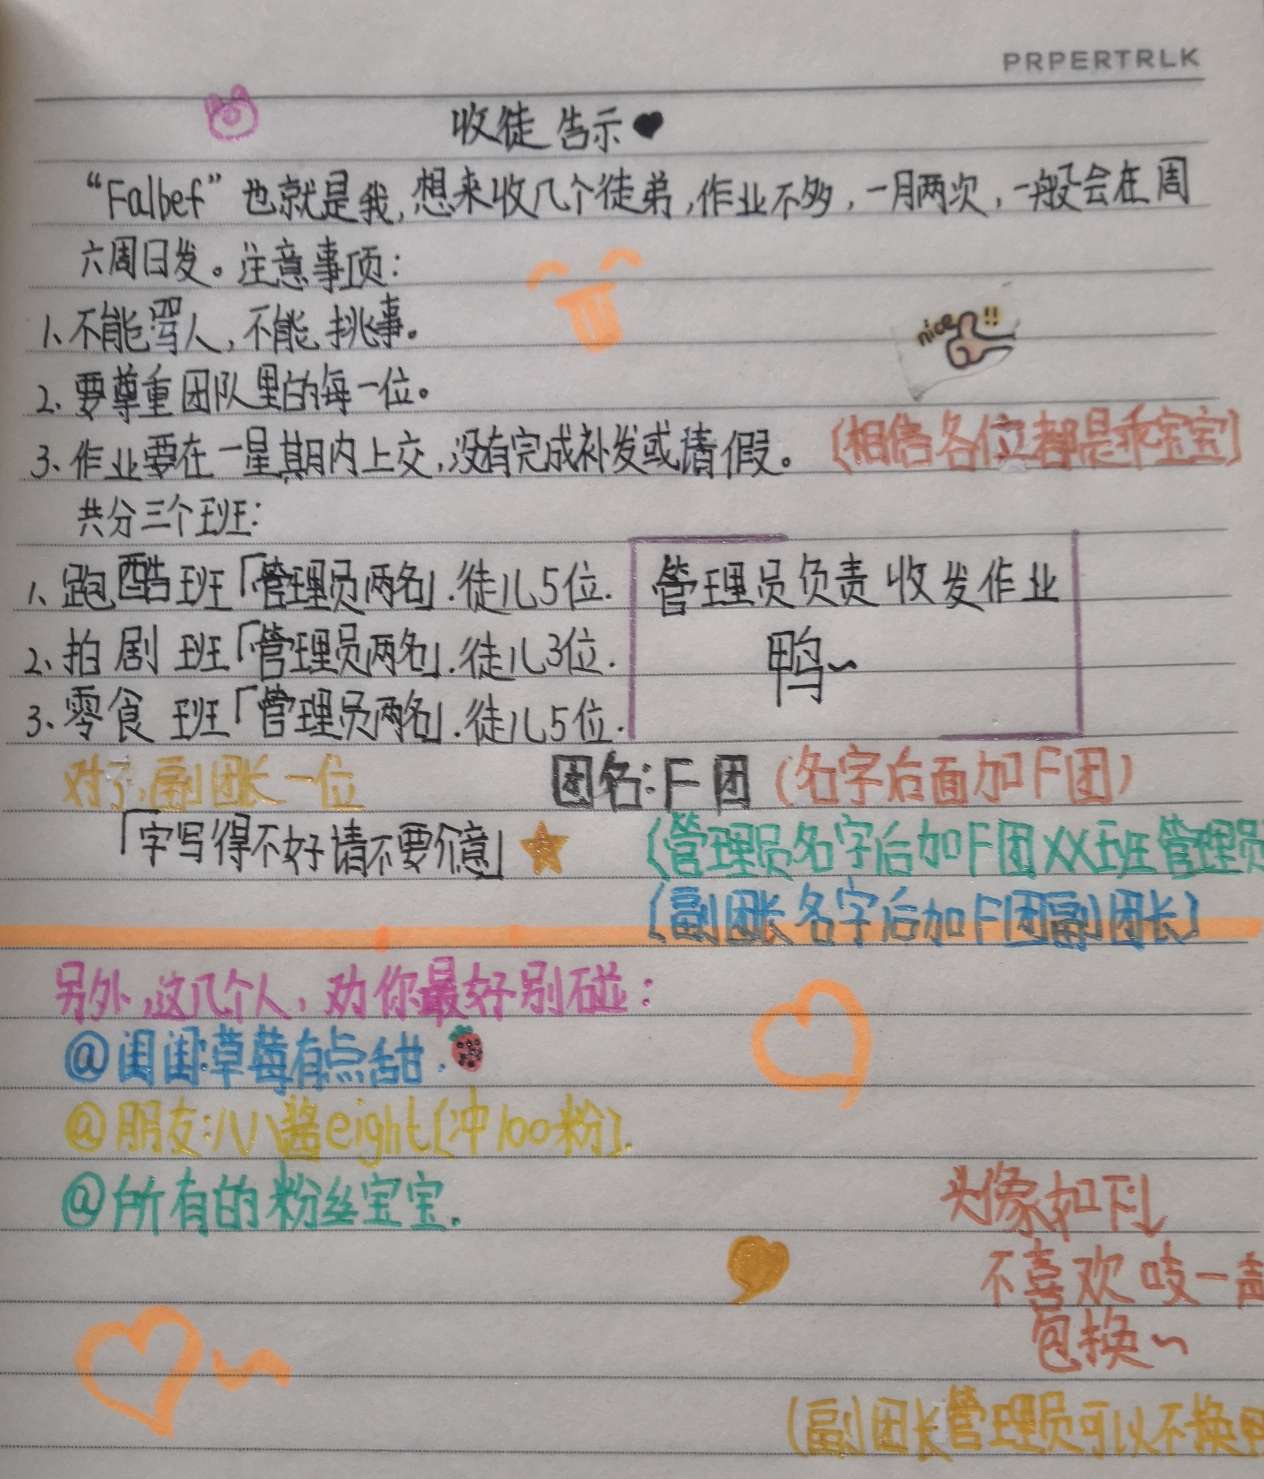 PRPERTRLK
收徒告示
“Falbef”也就是我,想来收几个徒弟,作业不多,一月两次,一般会在周
六周日发。注意事项:
1、不能骂人,不能挑事。
nice !!
2、要尊重团队里的每一位。
3、作业要在一星期内上交,没有完成补发或请假。(相信各位都是乖宝宝)
共分三个班:
1、跑酷班「管理员两名」.徒儿5位.
2、拍剧班「管理员两名」.徒儿3位.
3、零食班「管理员两名」.徒儿5位.
管理员负责收发作业
鸭~
对了,副团长一位
团名:F团(名字后面加F团)
「字写得不好请不要介意」
(管理员名字后加F团XX班管理员
(副团长名字后加F团副团长)
另外,这几个人,劝你最好别碰:
@闺闺:草莓有点甜.
@朋友:八八酱eight[冲100粉].
@所有的粉丝宝宝.
头像如下↓
不喜欢吱一声
包换~
(副团长管理员可以不换